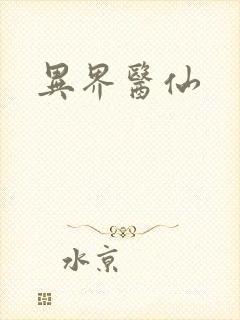 異界醫仙
水京